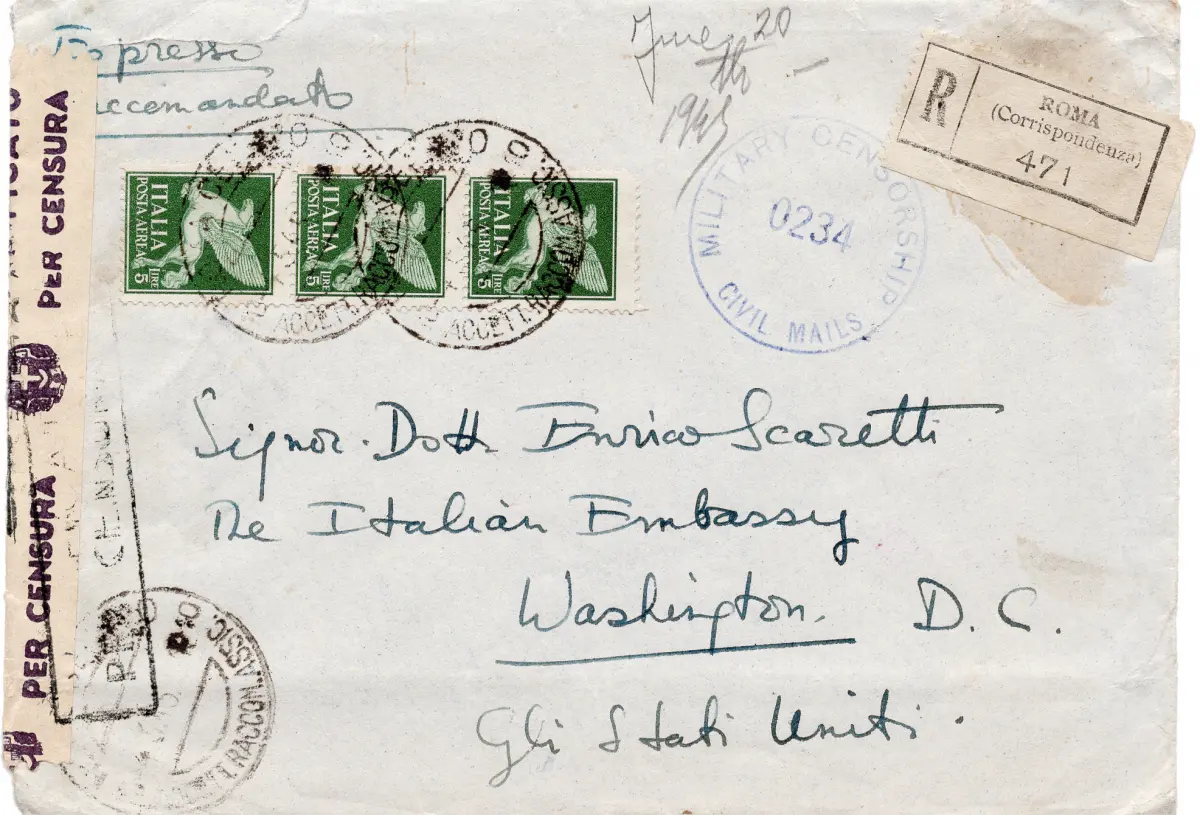 Espresso
Raccomandato
June 20
1945
R
ROMA
(Corrispondenza)
471
MILITARY CENSORSHIP
0234
CIVIL MAILS
ITALIA
POSTA AEREA
LIRE 5
ITALIA
POSTA AEREA
LIRE 5
ITALIA
POSTA AEREA
LIRE 5
PER CENSURA
PER CENSURA
Signor. Dott. Enrico Scaretti
The Italian Embassy
Washington. D. C.
Gli Stati Uniti.